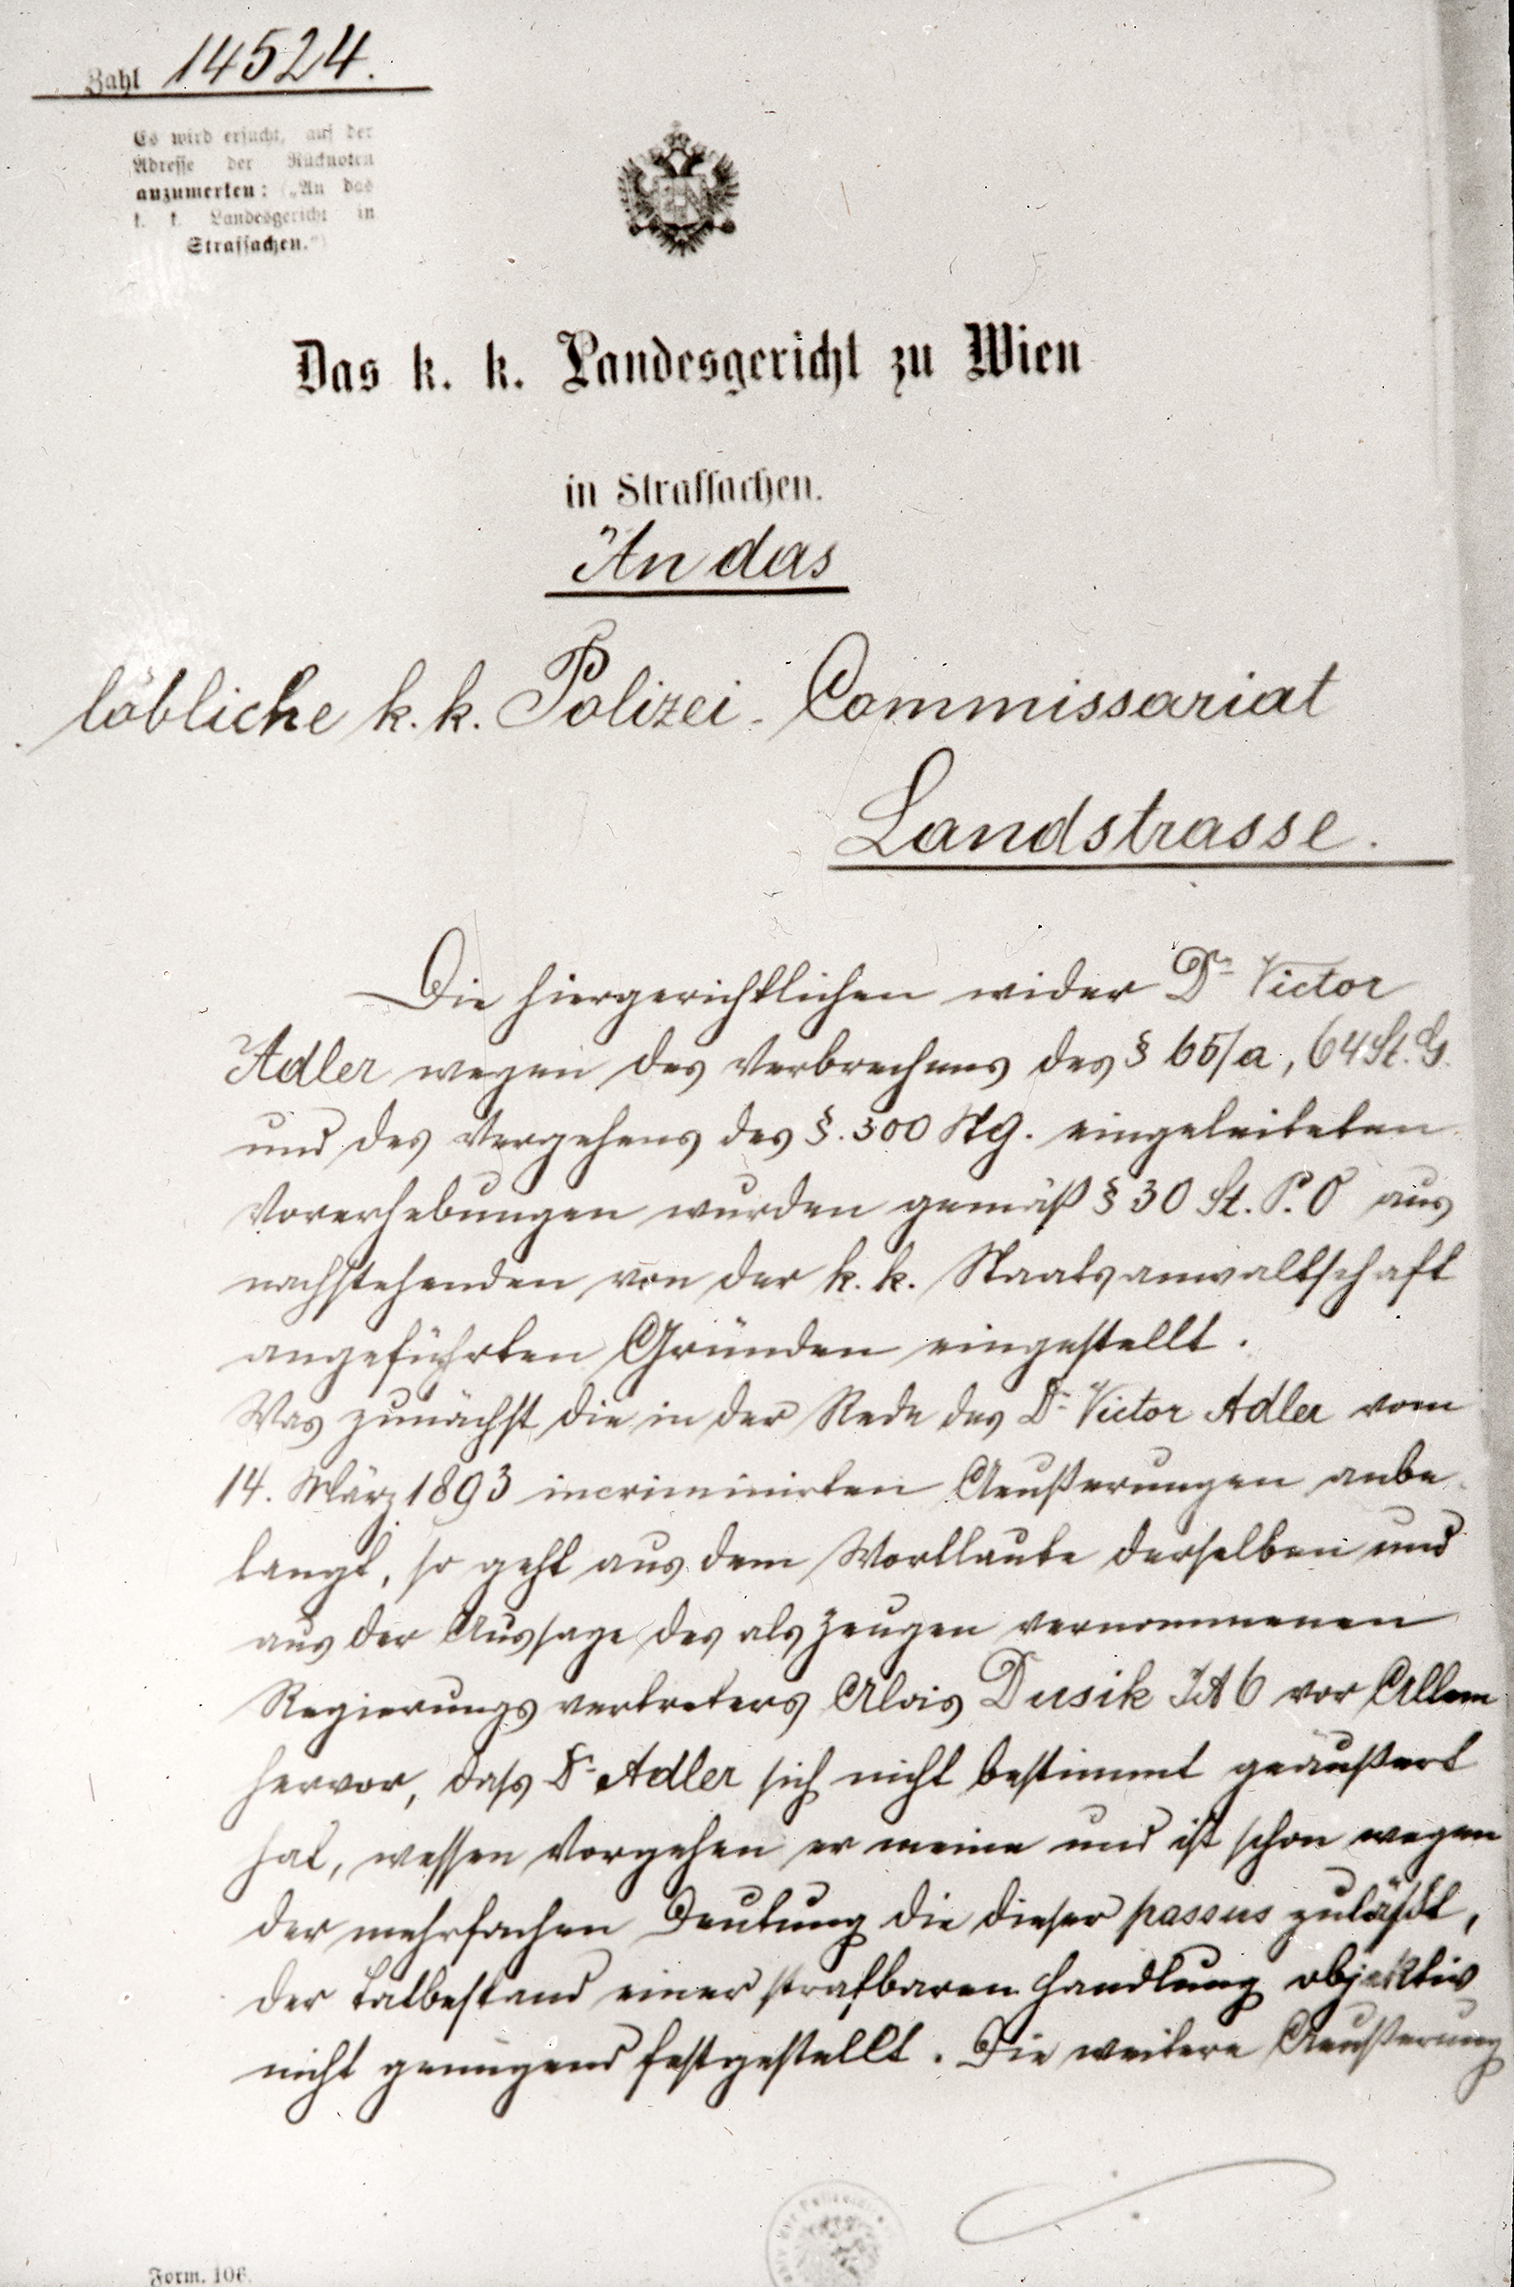 Zahl 14524.
Es wird ersucht, auf der
Adresse der Rücknoten
anzumerken: („An das
k. k. Landesgericht in
Strafsachen.“)
Das k. k. Landesgericht zu Wien
in Strafsachen.
An das
löbliche k. k. Polizei-Commissariat
Landstrasse.
Die hiergerichtlichen wider Dr Victor
Adler wegen des Verbrechens des § 65/a, 64 St. G.
und des Vergehens des §. 300 Stg. eingeleiteten
Vorerhebungen wurden gemäß § 30 St. P. O aus
nachstehenden von der k. k. Staatsanwaltschaft
angeführten Gründen eingestellt.
Was zunächst die in der Rede des Dr Victor Adler vom
14. März 1893 incriminirten Aeußerungen anbe-
langt, so geht aus dem Wortlaute derselben und
aus der Aussage des als Zeugen vernommenen
Regierungsvertreters Alois Dusik 6 vor Allem
hervor, dass Dr Adler sich nicht bestimmt geäußert
hat, wessen Vorgehen er meine und ist schon wegen
der mehrfachen Deutung die dieser passus zuläßt,
der Tatbestand einer strafbaren Handlung objektiv
nicht genügend festgestellt. Die weitere Aeußerung
Form. 106.